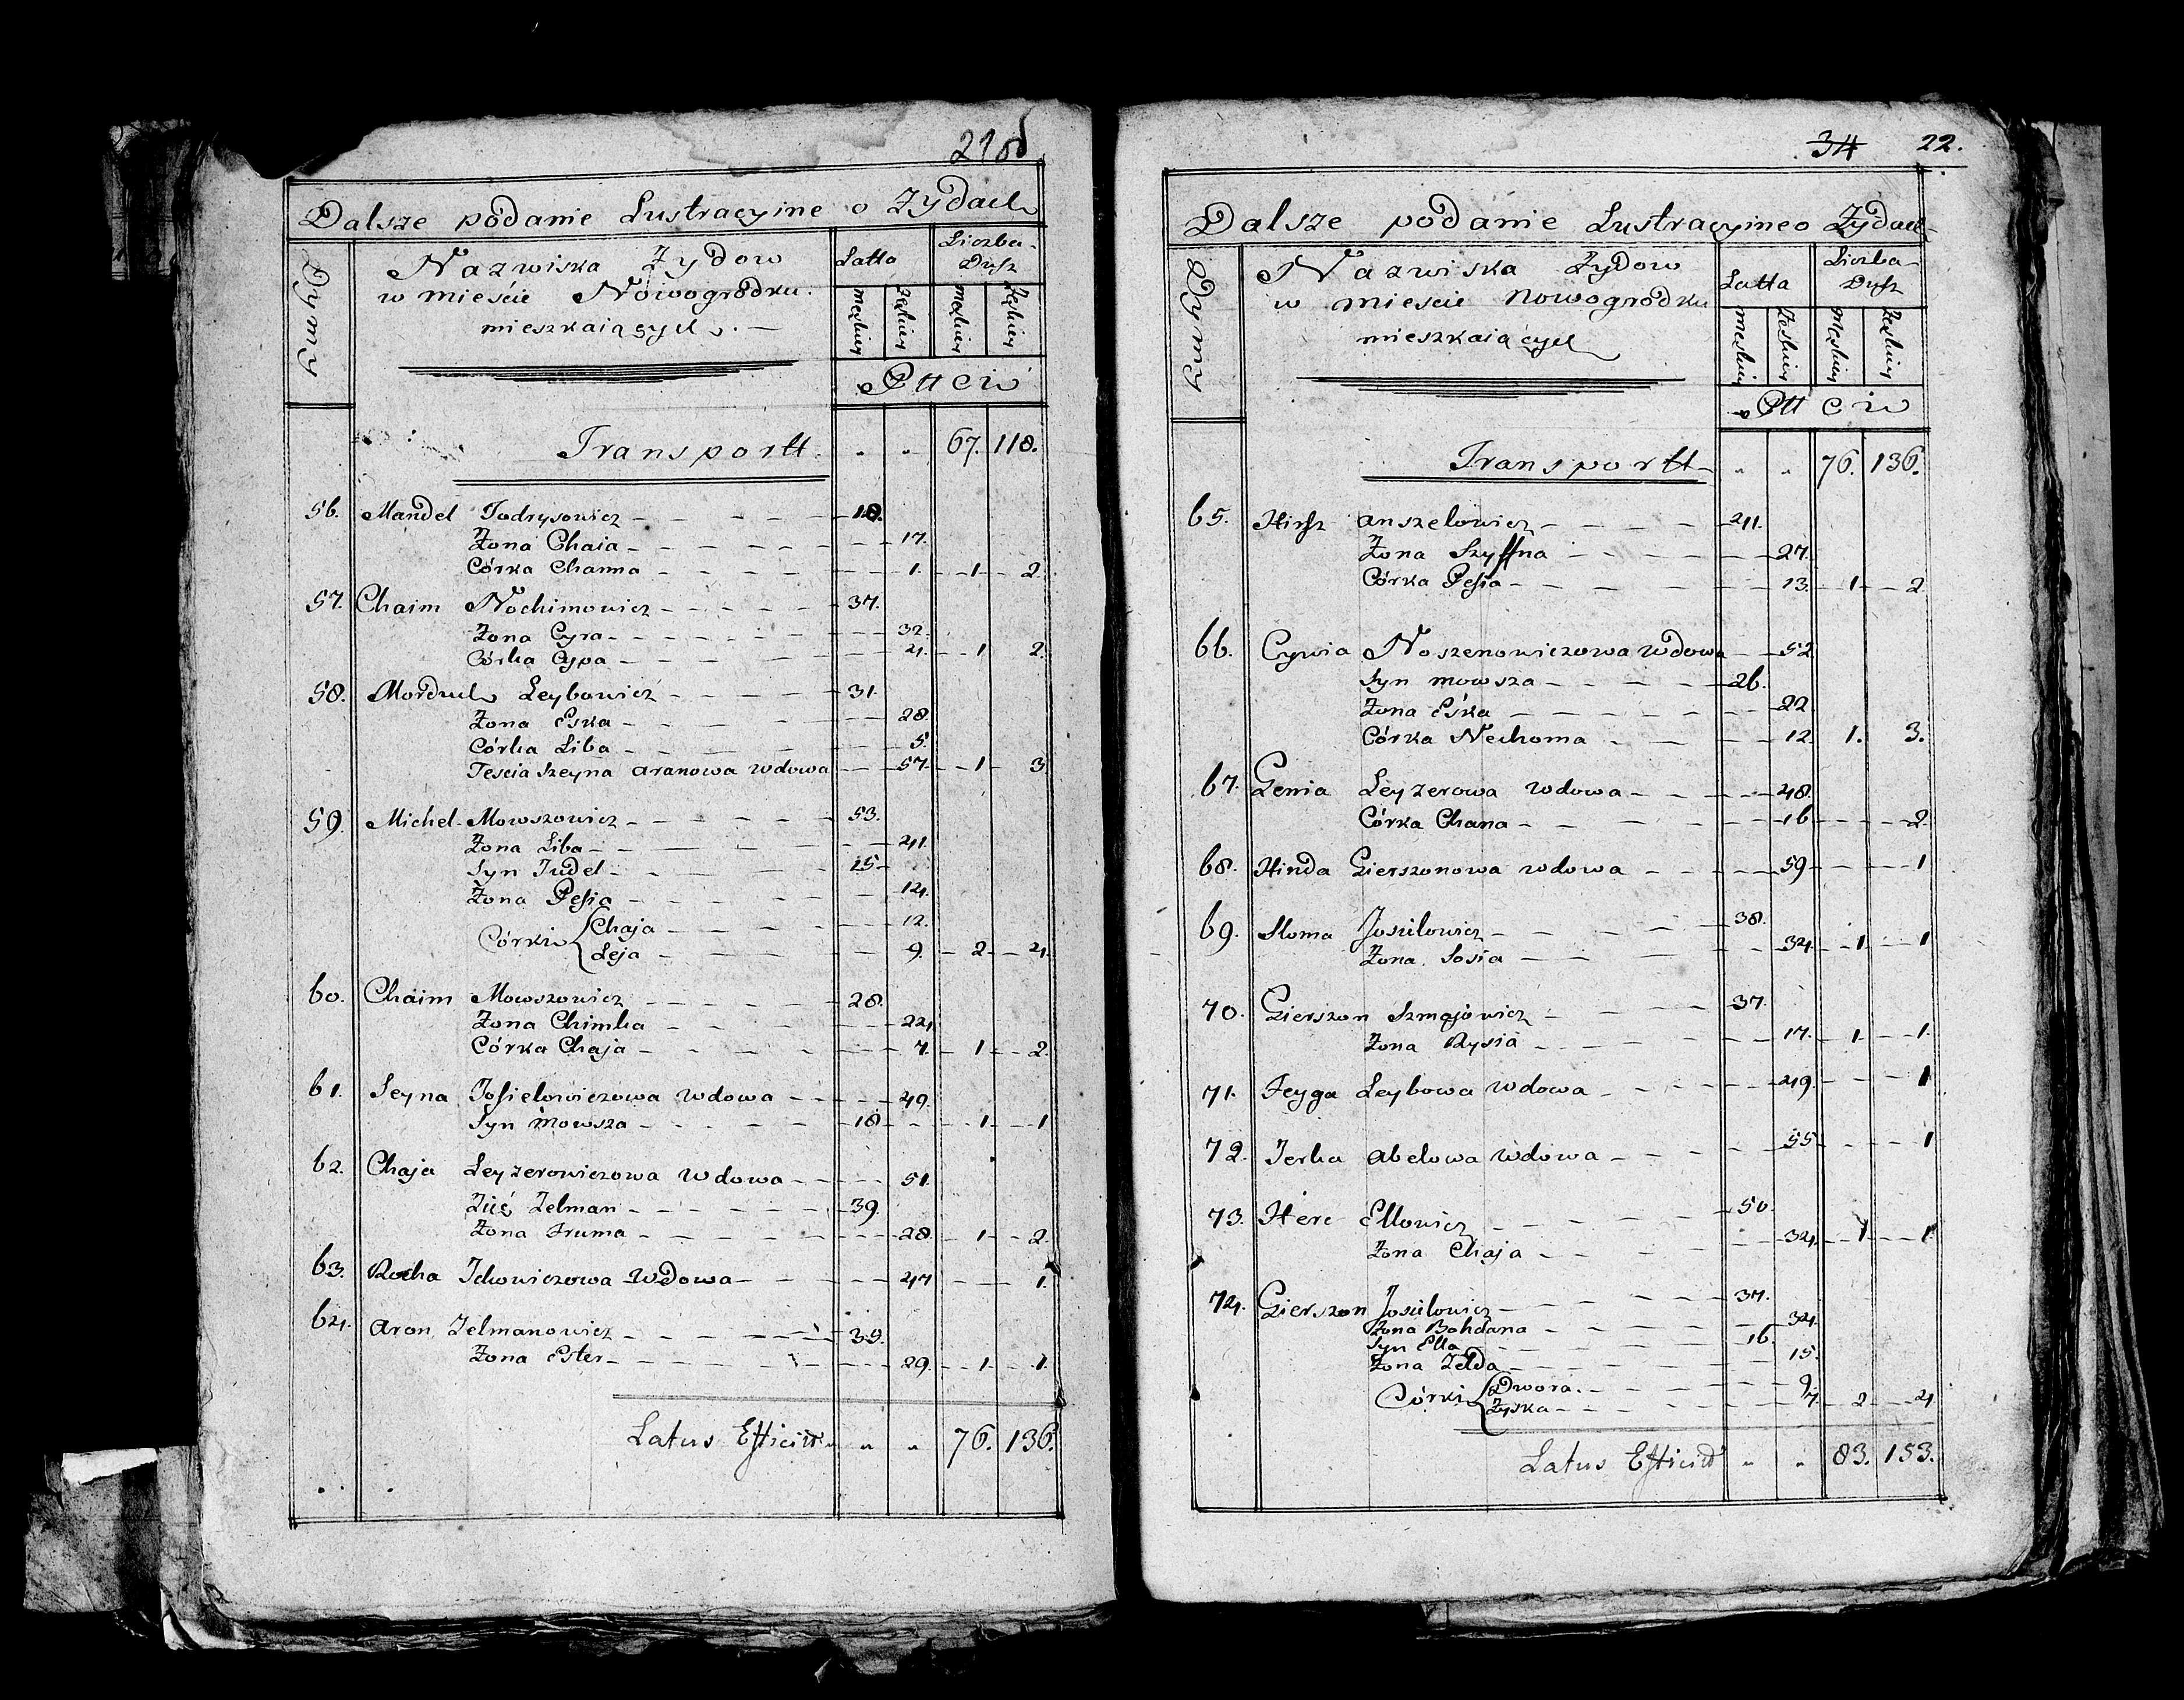 21об
Dalsze podanie Lustracyine o Żydach
Dymy
Nazwiska Żydow
w mieście Nowogrodku
mieszkaiących.
Latta
Liczba
Dusz
męskiey
żeskiey
męskiey
żeskiey
Płłci
Transportt. " " 67. 118.
56. Mandel Jodrysowicz 18.
Żona Chaia 17.
Córka Channa 1. 1 2.
57. Chaim Nochimowicz 37.
Żona Cyra 32.
Córka Cypa 4. 1 2.
58. Morduch Leybowicz 31.
Żona Eska 28.
Córka Liba 5.
Teścia Szeyna Aranowa wdowa 57. 1 3
59. Michel Mowszowicz 53.
Żona Liba 41.
Syn Judel 15
Żona Pesia 14.
Córki Chaja 12.
Leja 9. 2 4.
60. Chaim Mowszowicz 28.
Żona Chimka 24.
Córka Chaja 7. 1 2.
61. Seyna Josielowiczowa wdowa 49.
Syn Mowsza 18 1 1
62. Chaja Leyzerowiczowa wdowa 51.
Zięć Zelman 39.
Żona Fruma 28. 1 2.
63. Rocha Ickowiczowa wdowa 47 1.
64. Aron Zelmanowicz 39.
Żona Ester 29. 1 1.
Latus Efficitt " " 76. 136.
34 22.
Dalsze podanie Lustracyine o Żydach
Dymy
Nazwiska Żydow
w mieście Nowogrodku
mieszkaiących
Latta
Liczba
Dusz
męskiey
żeskiey
męskiey
żeskiey
Płłci
Transportt " " 76. 136.
65. Hirsz Anszelowicz 41.
Żona Szyffna 27.
Córka Pesia 13. 1 2
66. Cywia Noszenowiczowa wdowa 52
Syn Mowsza 26.
Żona Eśka 22
Córka Nechoma 12. 1. 3.
67. Genia Leyzerowa wdowa 48.
Córka Chana 16 2
68. Hinda Gierszonowa wdowa 59 1
69. Słoma Josielowicz 38.
Żona Sosia 34. 1 1
70. Gierszon Szmojowicz 37.
Żona Rysia 17. 1 1.
71. Feyga Leybowa wdowa 49. 1
72. Jerka Abelowa wdowa 55 1
73. Herc Ellowicz 50.
Żona Chaja 34. 1 1
74. Gierszon Josielowicz 37.
Żona Bohdana 34.
Syn Ella 16.
Żona Zelda 15.
Córki Dwora 9
Zyska 7. 2 4
Latus Efficitt " " 83. 153.